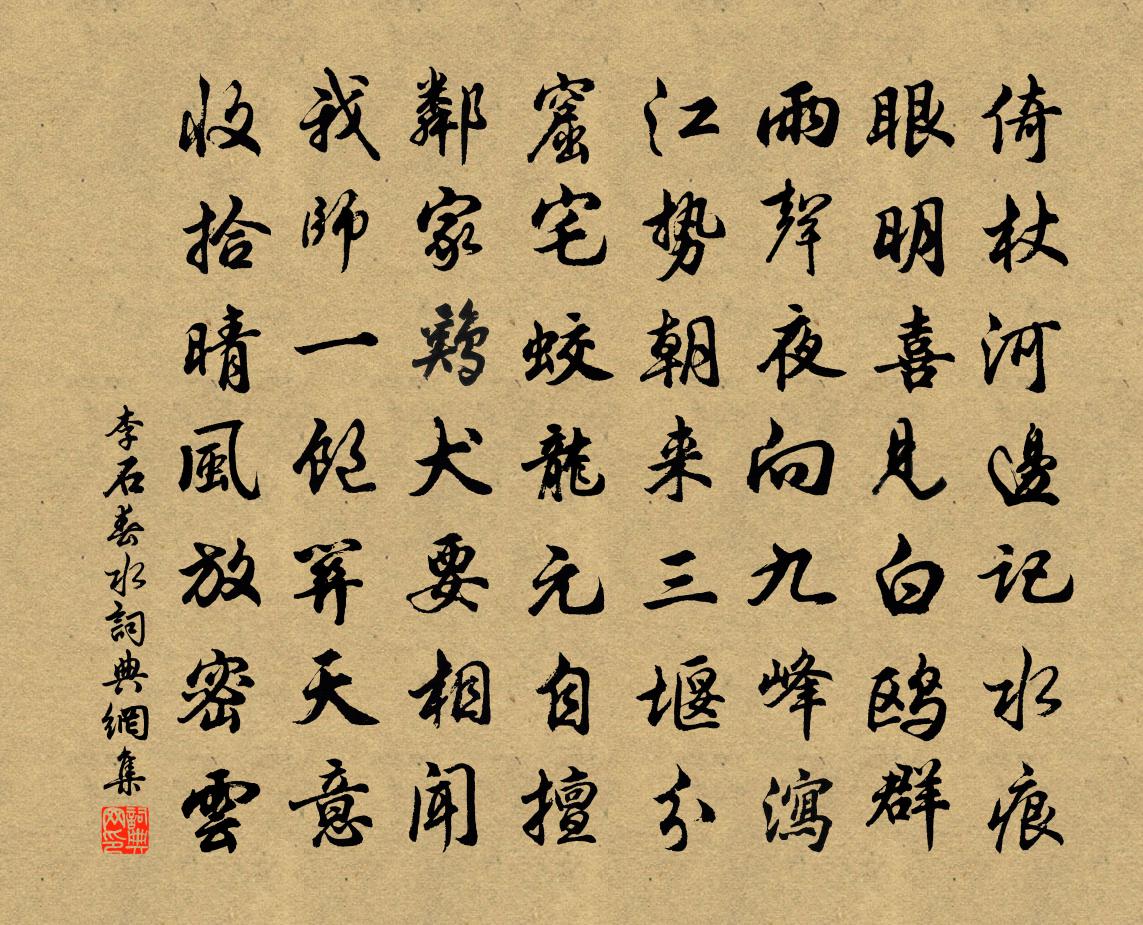 倚杖河邊記水痕
眼明喜見白鷗群
雨聲夜向九峰瀉
江勢朝来三堰分
窟宅蛟龍元自擅
鄰家鷄犬要相聞
我師一飽算天意
收拾晴風放密雲
李石春水詞典網集
詞典網印